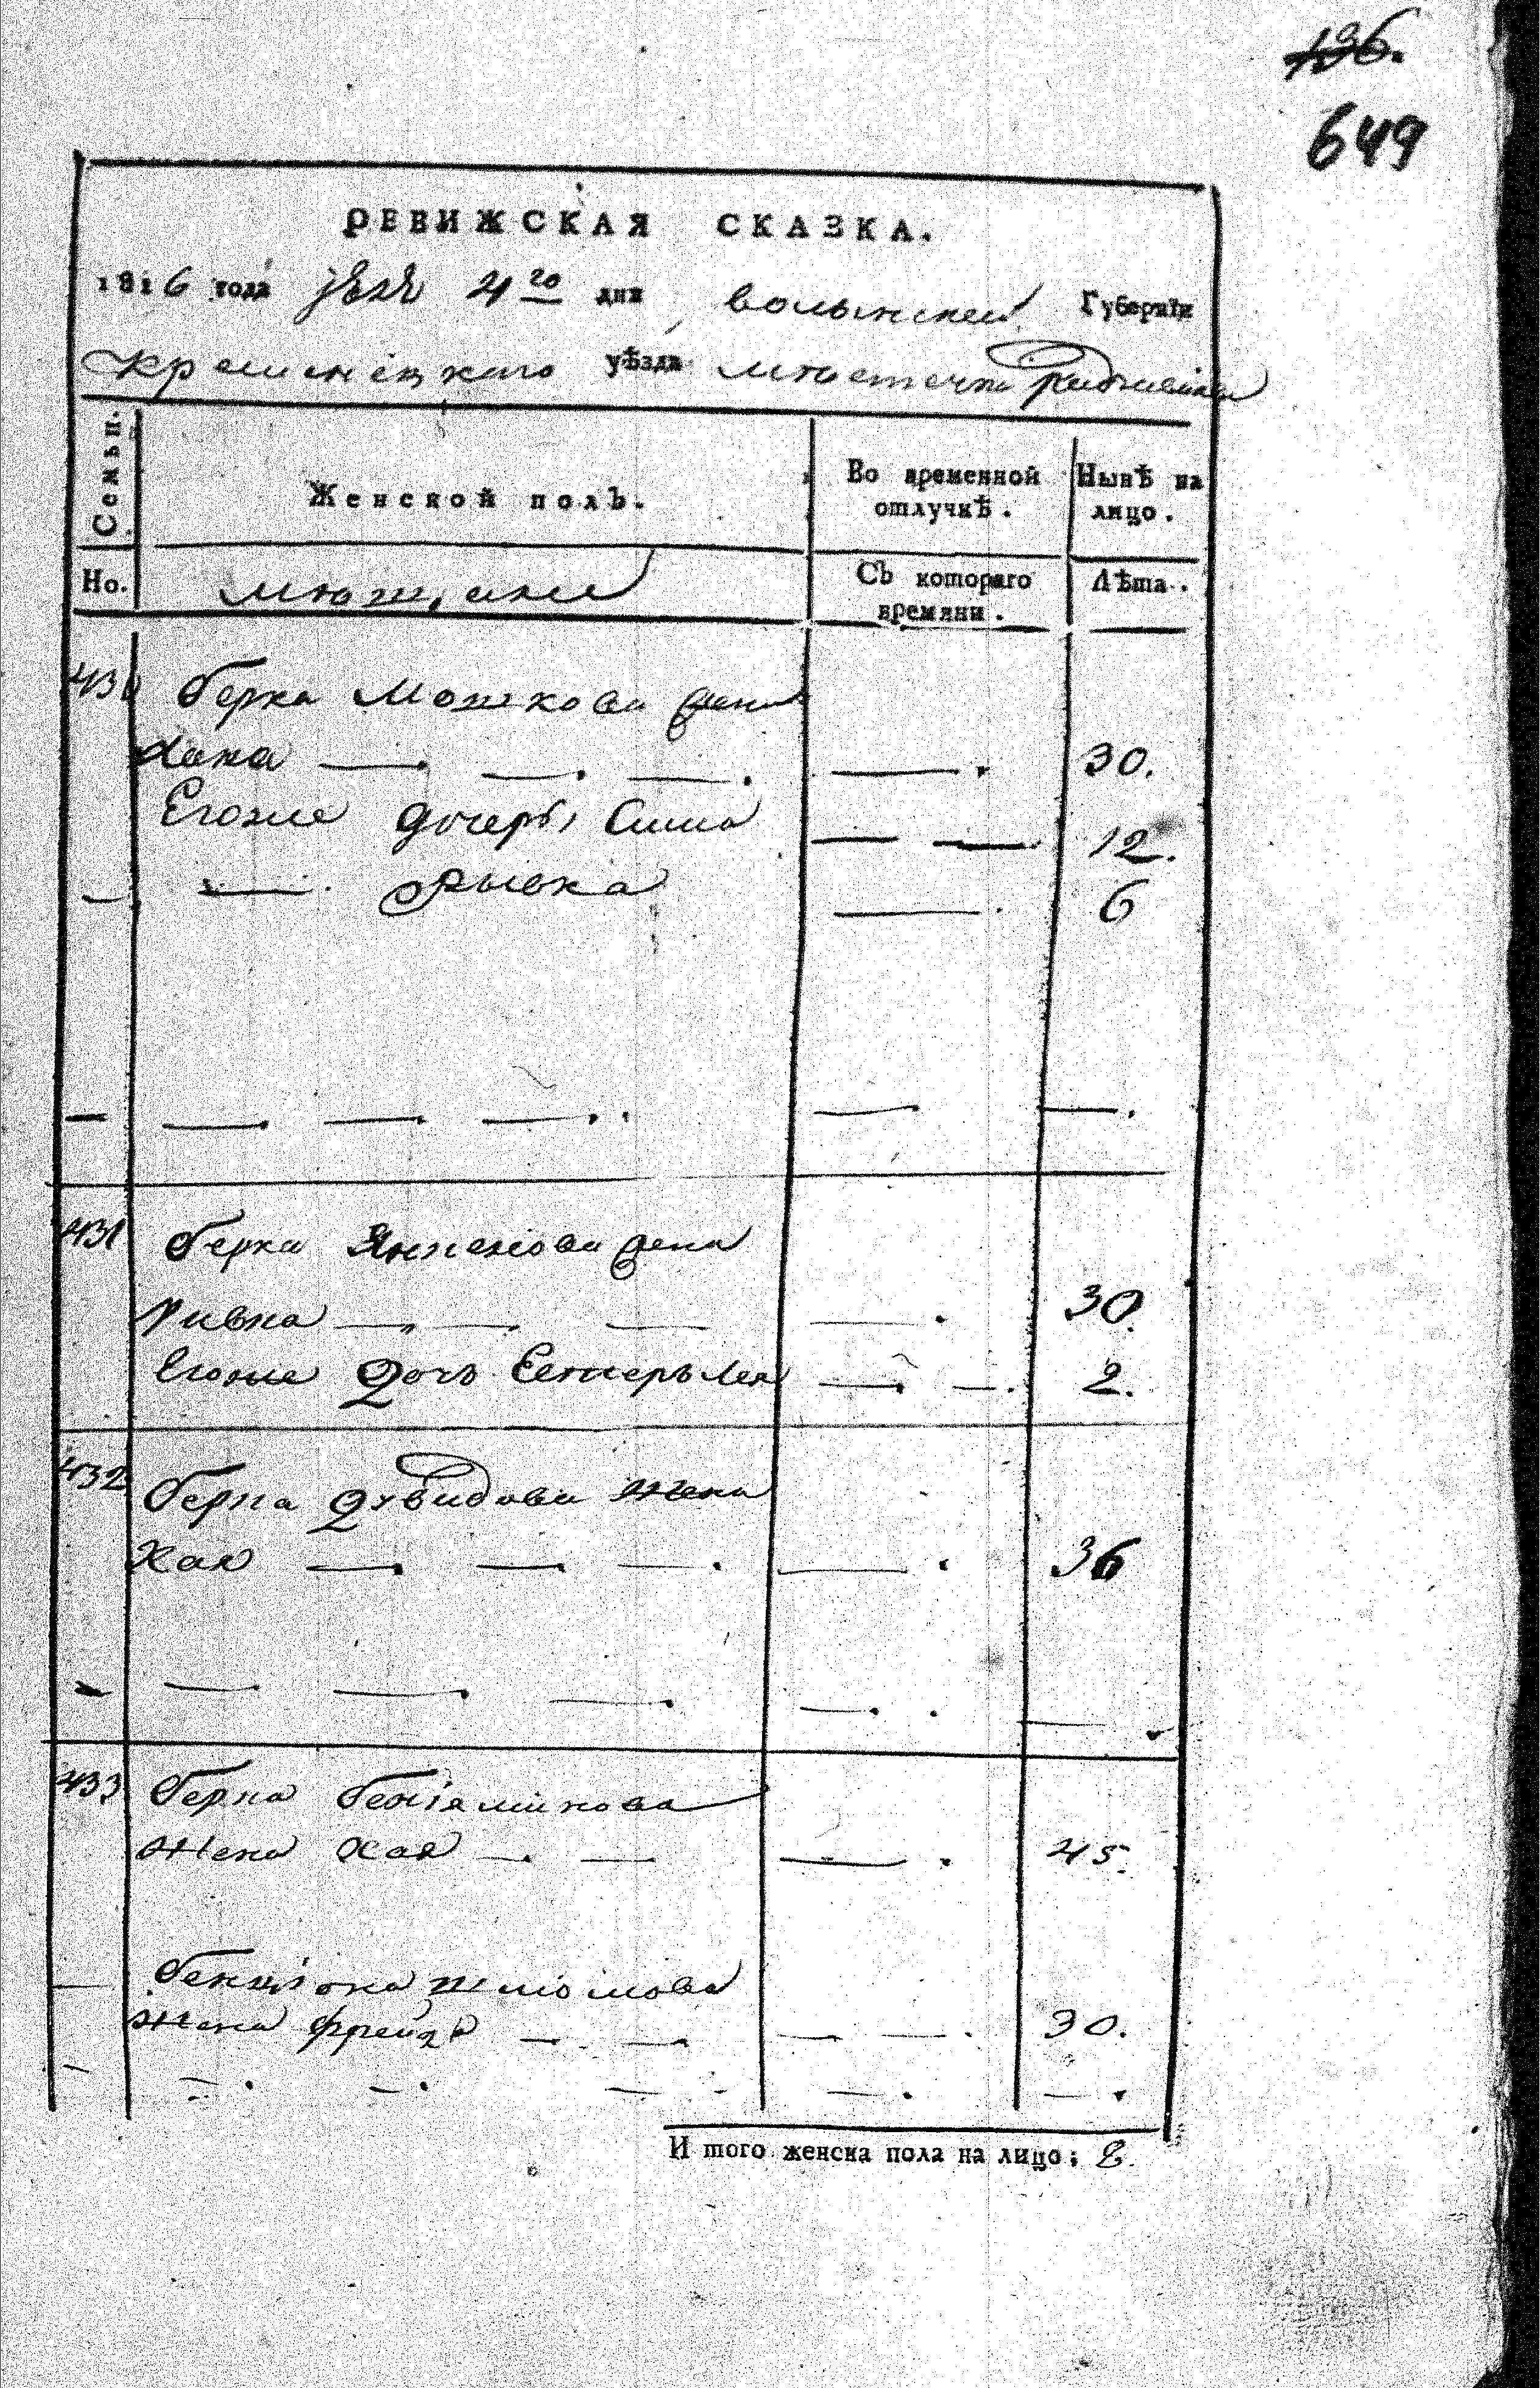 196.
649
РЕВИЖСКАЯ СКАЗКА.
1816 года 4го дня волынской Губернїи
кременецкаго уѣзда местечка Радзивилова
Семьи. Женской полъ. Во временной отлучкѣ. Нынѣ на лицо.
Но. мещане Съ котораго времяни. Лѣта.
430 берка Мошкова жена
хана — — — — 30.
Егоже дочери Сима — — 12.
— — Рывка — 6
— — — — — —.
431 берка жена
ривка — — — — 30.
Егоже дочь Естеръ Лея — — 2.
432 берка Давидова жена
Хая — — — — 36
— — — — — —
433 берка бенїаминова
жена Хая — — — 45.
— шліомова
жена фрейда — — — — 30.
— — — — — —.
И того женска пола на лицо: 8.